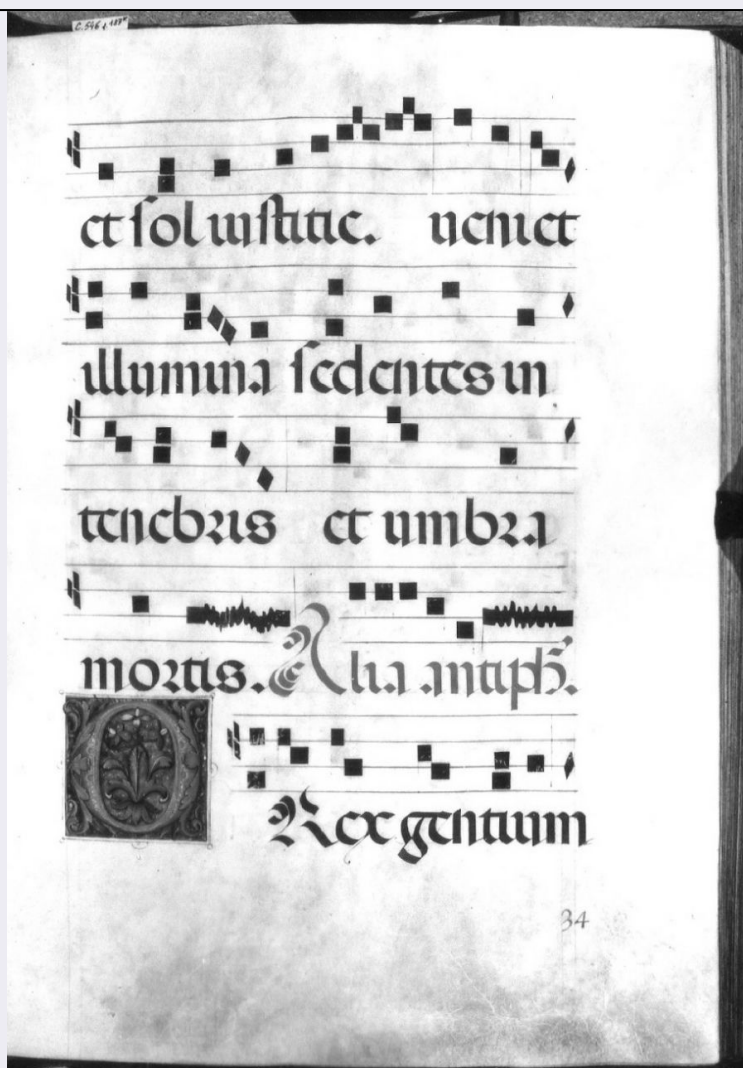 et sol iustitie. ueniet
illumina sedentes in
tenebris et umbra
mortis. Alia antiph.
O Rex gentium
34